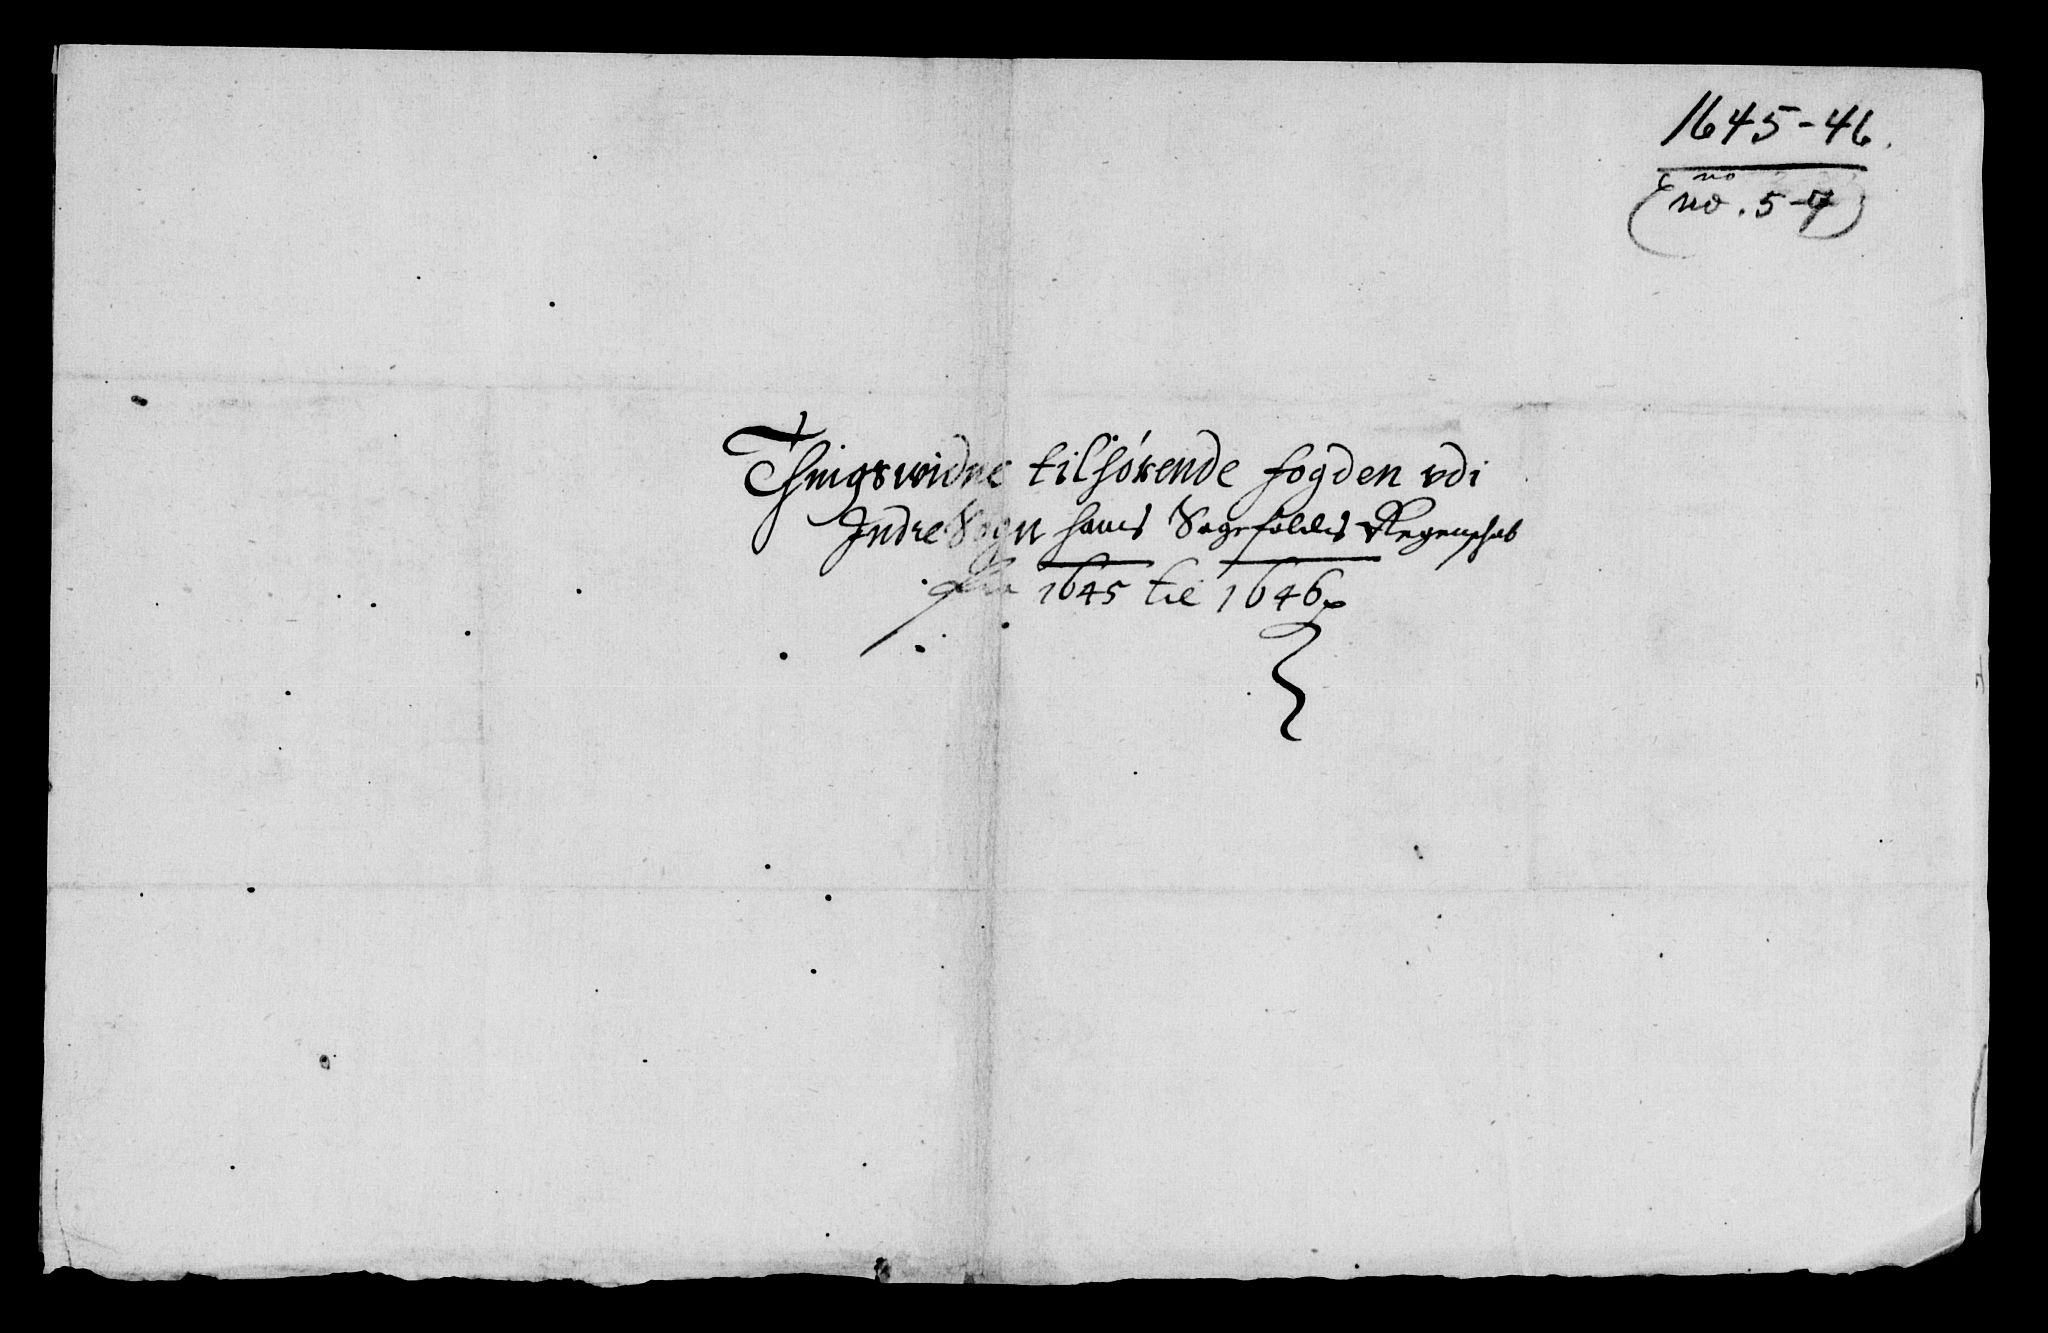 1645-46.
(no. 5-7)
Thingswidne tilhörende fogden vdi
Indre Sogn hans Sagefaldis Regenschab
fra 1645 til 1646